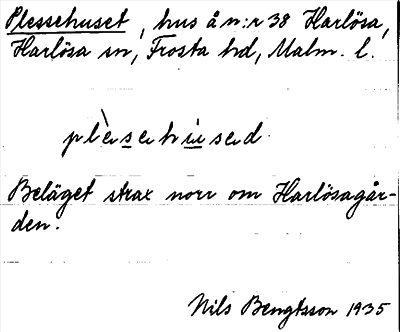 Plessehuset, hus å n:r 38 Harlösa,
Harlösa sn, Frosta hd, Malm. l.
plèsehúsed.
Beläget strax norr om Harlösagår-
den.
Nils Bengtsson 1935